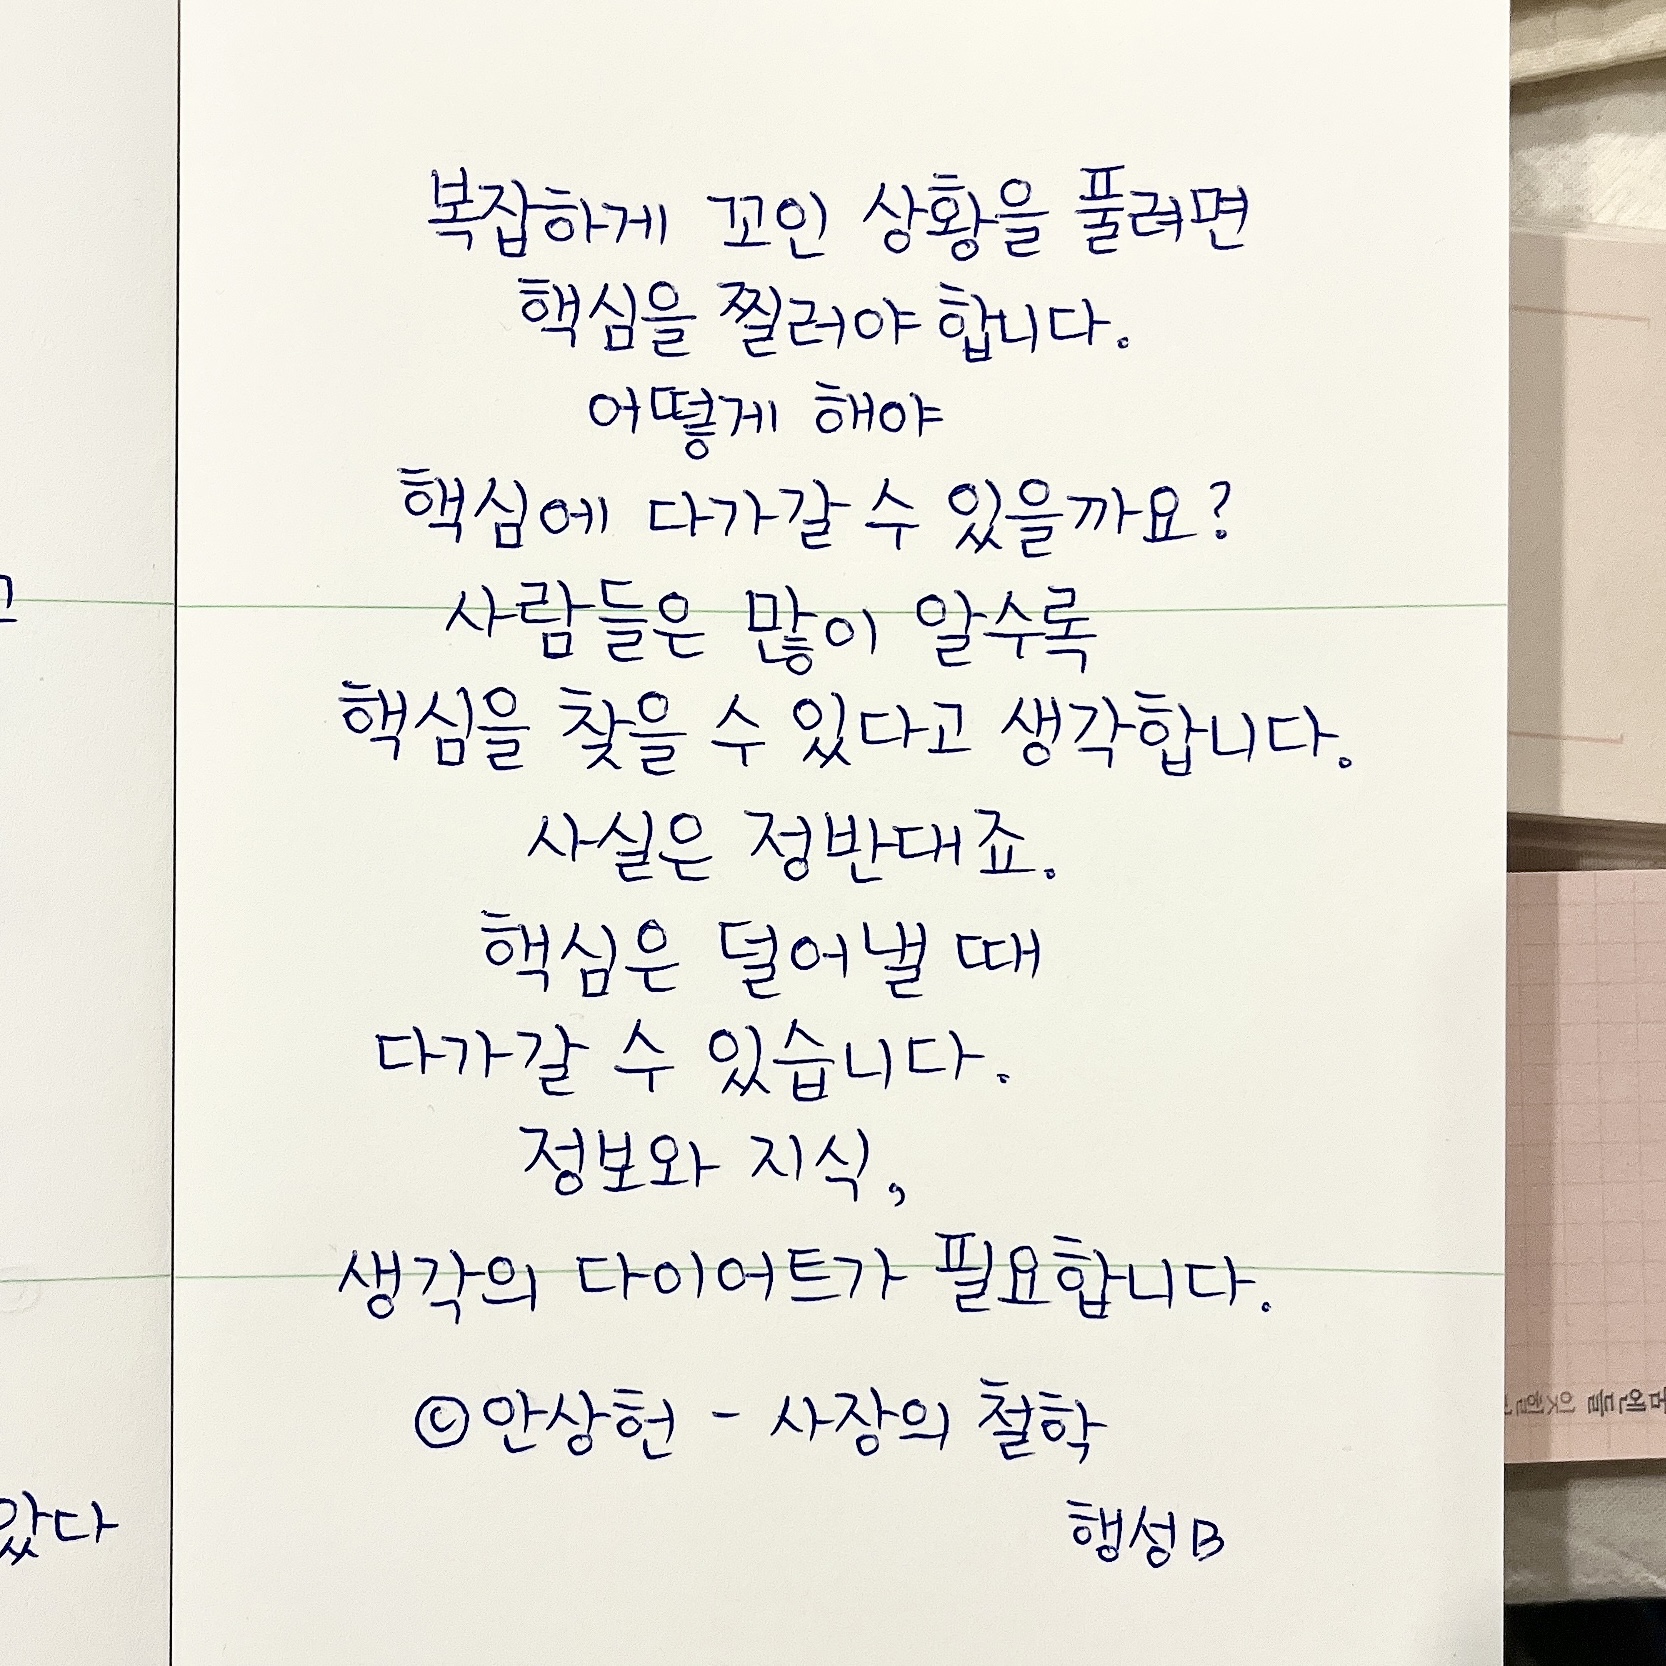 복잡하게 꼬인 상황을 풀려면
핵심을 찔러야 합니다.
어떻게 해야
핵심에 다가갈 수 있을까요?
사람들은 많이 알수록
핵심을 찾을 수 있다고 생각합니다.
사실은 정반대죠.
핵심은 덜어낼 때
다가갈 수 있습니다.
정보와 지식,
생각의 다이어트가 필요합니다.
©안상헌 - 사장의 철학
행성B
았다